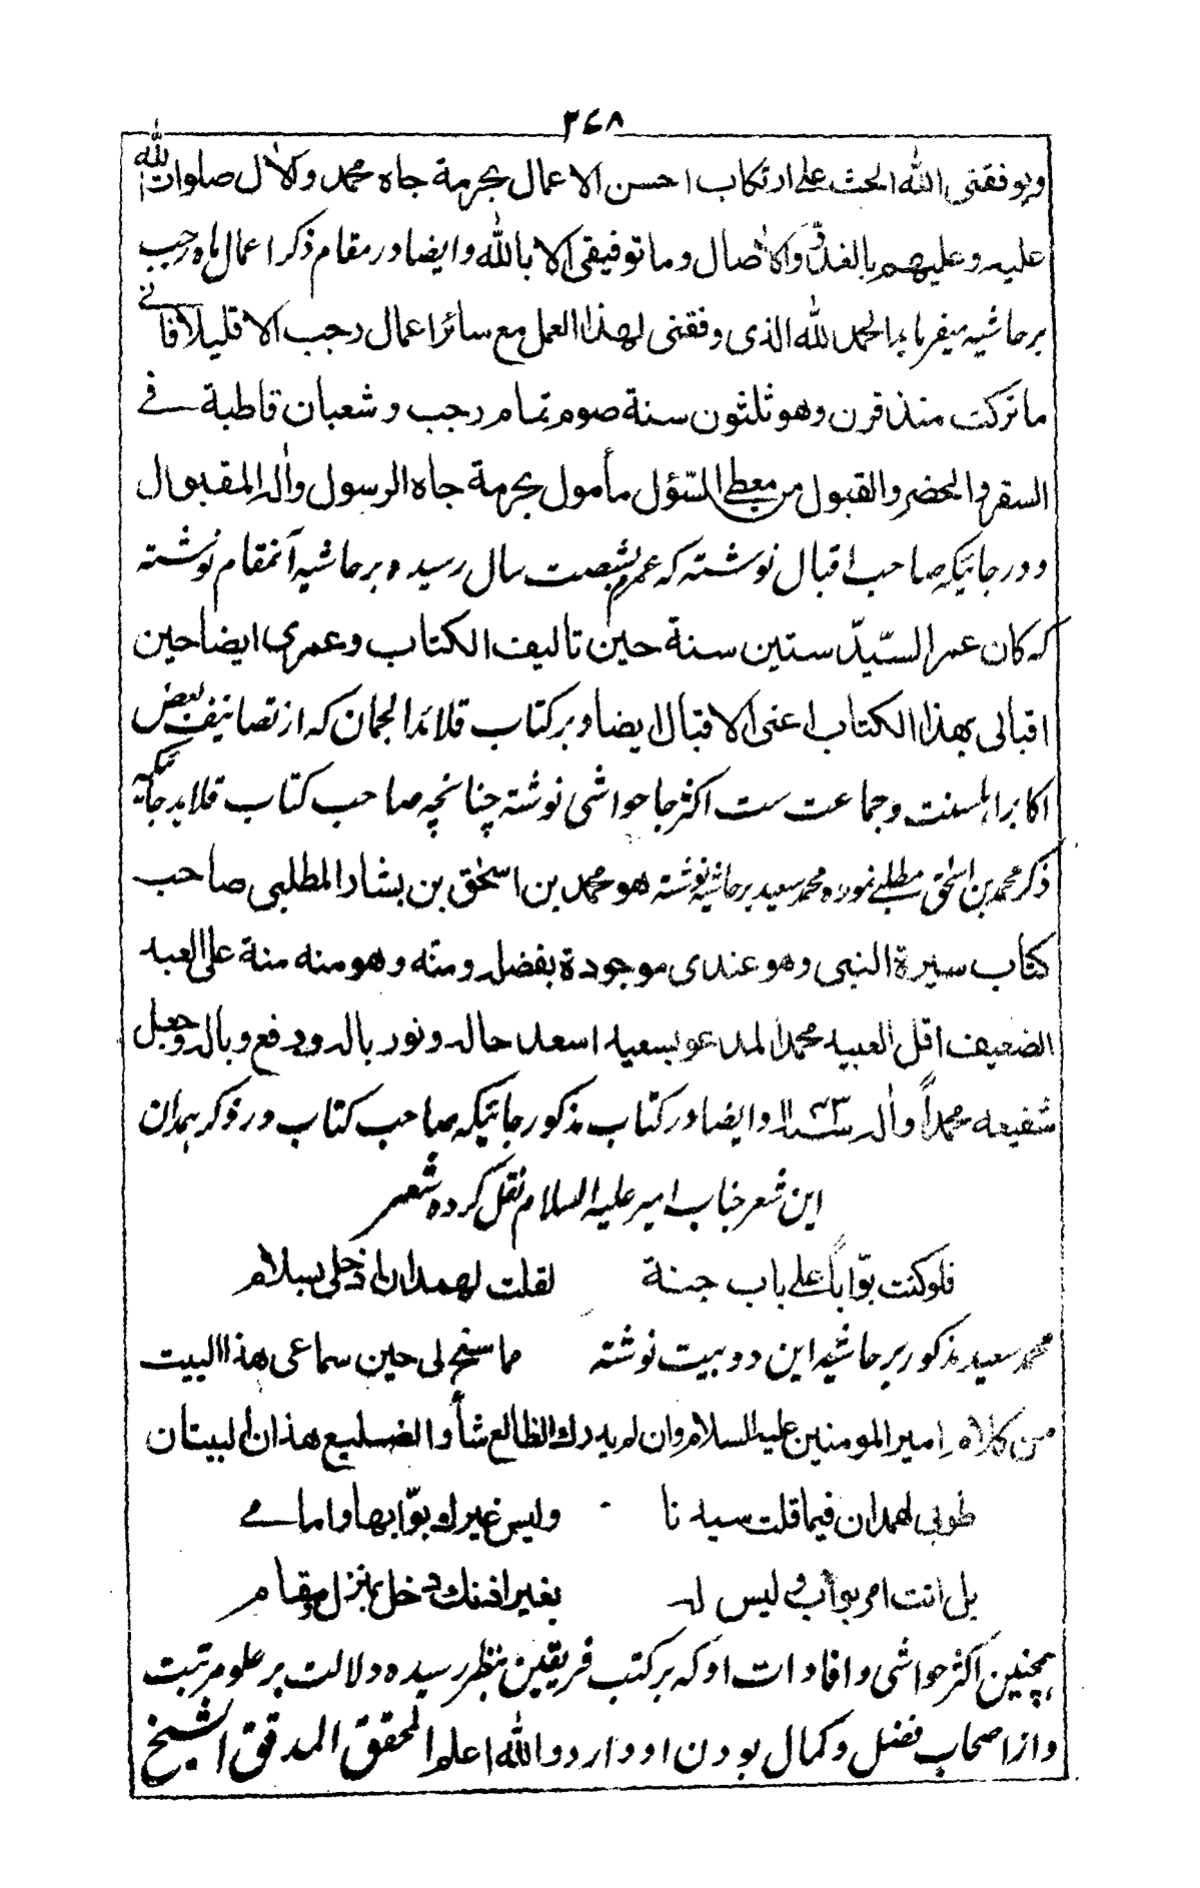 ٣٤٨
ويوفقنى الله الحث على ارتكاب احسن الاعمال بحرمة جاه محمد والأل صلوات الله
عليه وعليهم بالغدّو والأصال وما توفيقى الا بالله وايضا در مقام ذكر اعمال ماه رجب
بر حاشيه ميفرمايد الحمد لله الذى وفقنى لهذا العمل مع سائر اعمال رجب الا قليلا فانے
ما تركت منذ قرن وهو ثلثون سنة صوم تمام رجب وشعبان قاطبة فے
السفر والحضر والقبول من معطى السّؤل مأمول بحرمة جاه الرسول وأله المقبول
ودر جائيكه صاحب اقبال نوشته كه عمرم بشصت سال رسيده بر حاشيه آنمقام نوشته
كه كان عمر السّيّد ستين سنة حين تاليف الكتاب وعمرى ايضا حين
اقبالى بهذا الكتاب اعنى الاقبال ايضا وبر كتاب قلائد الجمان كه از تصانيف بعض
اكابر اهلسنت وجماعت ست اكثر جا حواشى نوشته چنانچه صاحب كتاب قلايد جائيكه
ذكر محمد بن اسحٰق مطلبے نموده محمد سعيد بر حاشيه نوشته هو محمد بن اسحٰق بن بشار المطلبى صاحب
كتاب سيرة النبى وهو عندى موجودة بفضله ومنّه وهو منه منة على العبد
الضعيف اقل العبيد محمد المدعو بسعيد اسعد حاله ونور باله ودفع وباله وجعل
شفيعه محمداً وأله سنه ١١٣٣ وايضا در كتاب مذكور جائيكه صاحب كتاب در ذكر همدان
اين شعر جناب امير عليه السلام نقل كرده شعر
فلو كنت بوّاباً على باب جنة لقلت لهمدان ادخلى بسلام
محمد سعيد مذكور بر حاشيه اين دو بيت نوشته مما سنح لى حين سماعى هذا البيت
من كلام امير المومنين عليه السلام وان لم يدرك الظالع شأو الضليع هذان البيتان
طوبى لهمدان فيما قلت سيدنا وليس غيرك بوّابها وامامے
بل انت امر بواب وليس له بغير اذنك دخل بمنزل ومقام
همچنين اكثر حواشى وافادات او كه بر كتب فريقين بنظر رسيده دلالت بر علو مرتبت
واز اصحاب فضل وكمال بودن او دارد والله اعلم المحقق المدقق الشيخ